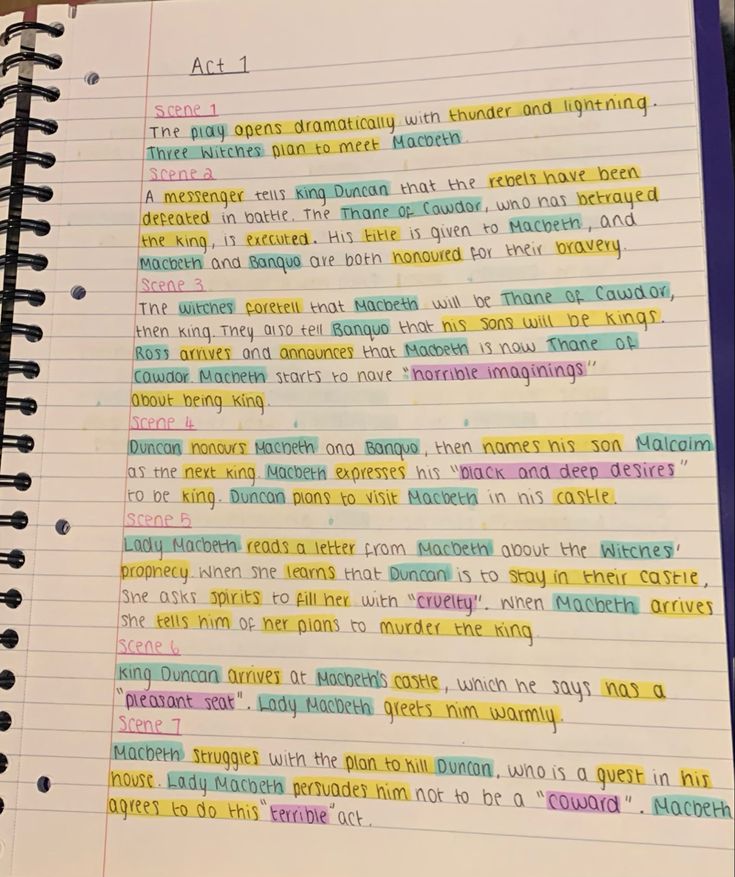 Act 1
Scene 1
The play opens dramatically with thunder and lightning.
Three Witches plan to meet Macbeth
Scene 2
A messenger tells King Duncan that the rebels have been
defeated in battle. The Thane of Cawdor, who has betrayed
the king, is executed. His title is given to Macbeth, and
Macbeth and Banquo are both honoured for their bravery.
Scene 3
The witches foretell that Macbeth will be Thane of Cawdor,
then King. They also tell Banquo that his sons will be kings.
Ross arrives and announces that Macbeth is now Thane of
Cawdor. Macbeth starts to have "horrible imaginings"
about being king.
Scene 4
Duncan honours Macbeth and Banquo, then names his son Malcolm
as the next king. Macbeth expresses his "black and deep desires"
to be king. Duncan plans to visit Macbeth in his castle.
Scene 5
Lady Macbeth reads a letter from Macbeth about the Witches'
prophecy. When she learns that Duncan is to stay in their castle,
she asks spirits to fill her with "cruelty". When Macbeth arrives
she tells him of her plans to murder the king
Scene 6
King Duncan arrives at Macbeth's castle, which he says has a
"pleasant seat". Lady Macbeth greets him warmly.
Scene 7
Macbeth struggles with the plan to kill Duncan, who is a guest in his
house. Lady Macbeth persuades him not to be a "coward". Macbeth
agrees to do this "terrible" act.